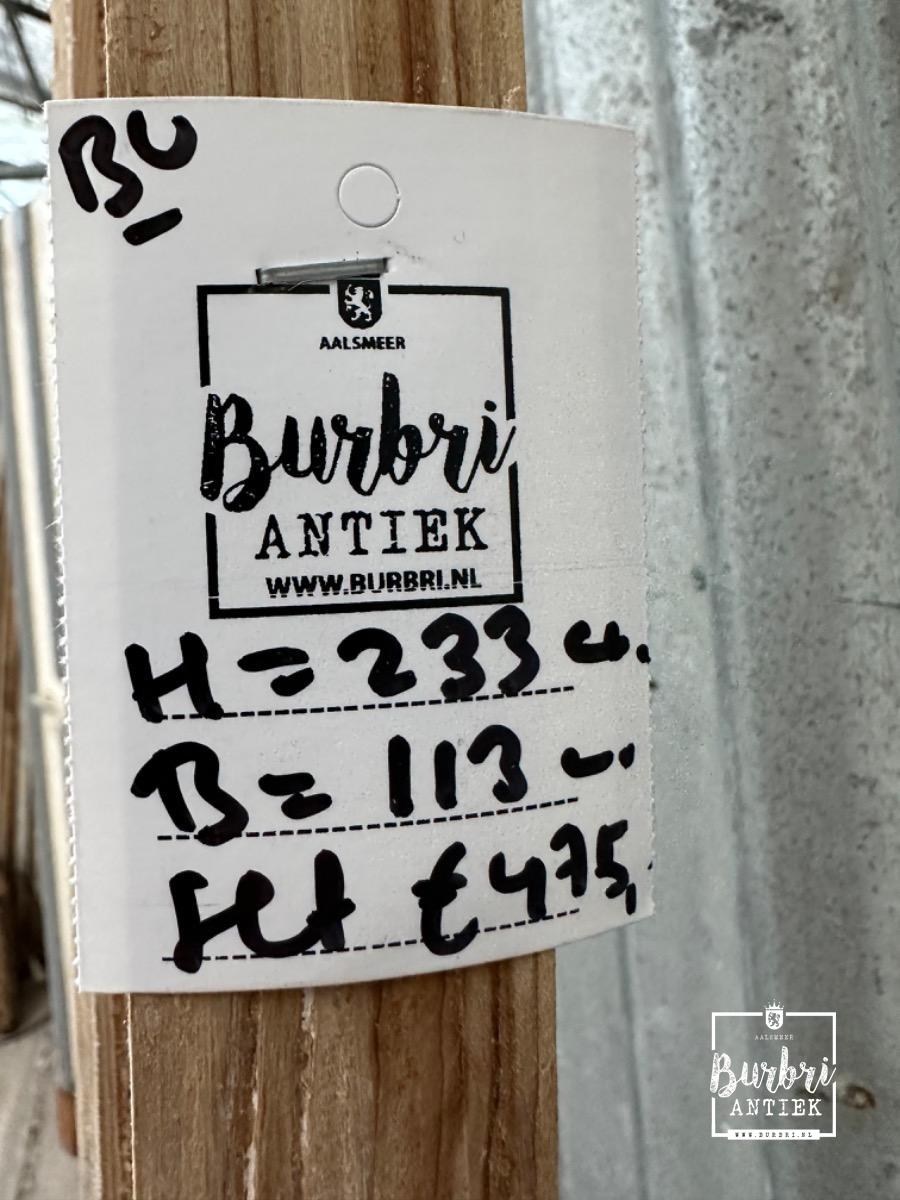 BU
AALSMEER
Burbri
ANTIEK
WWW.BURBRI.NL
H = 233 cm.
B = 113 cm.
set € 475,-
AALSMEER
Burbri
ANTIEK
WWW.BURBRI.NL